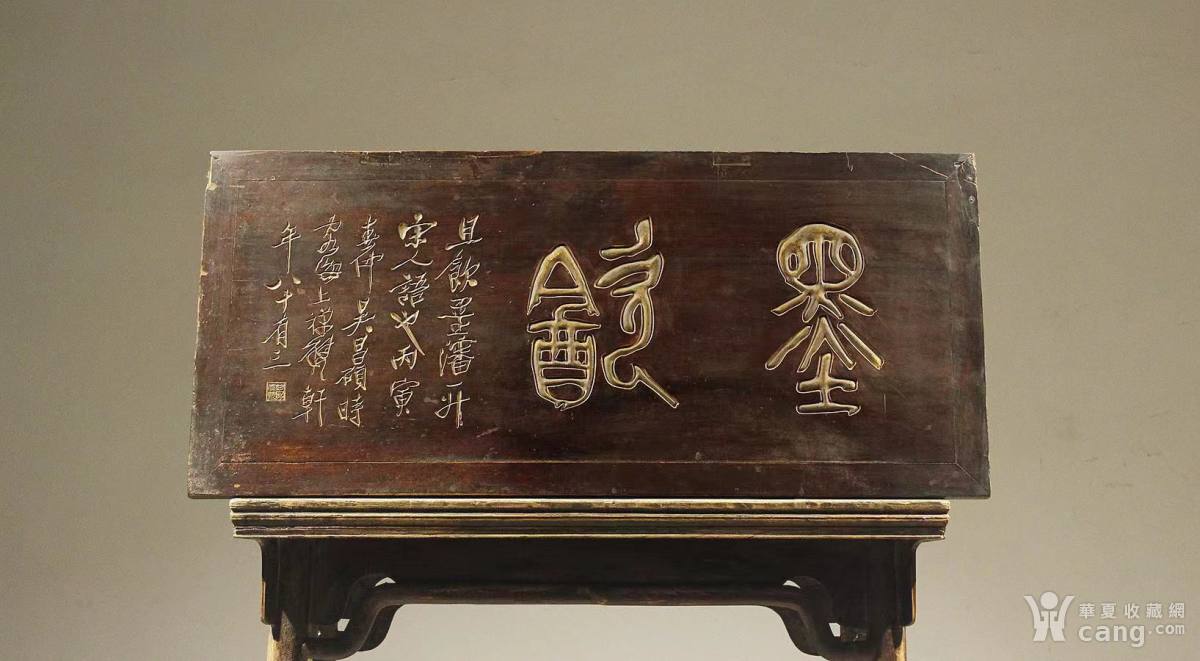 墨飲
且飲墨瀋一升
宋人語也丙寅
春仲吳昌碩時
海上禪甓軒
年八十有三
華夏收藏網
cang.com